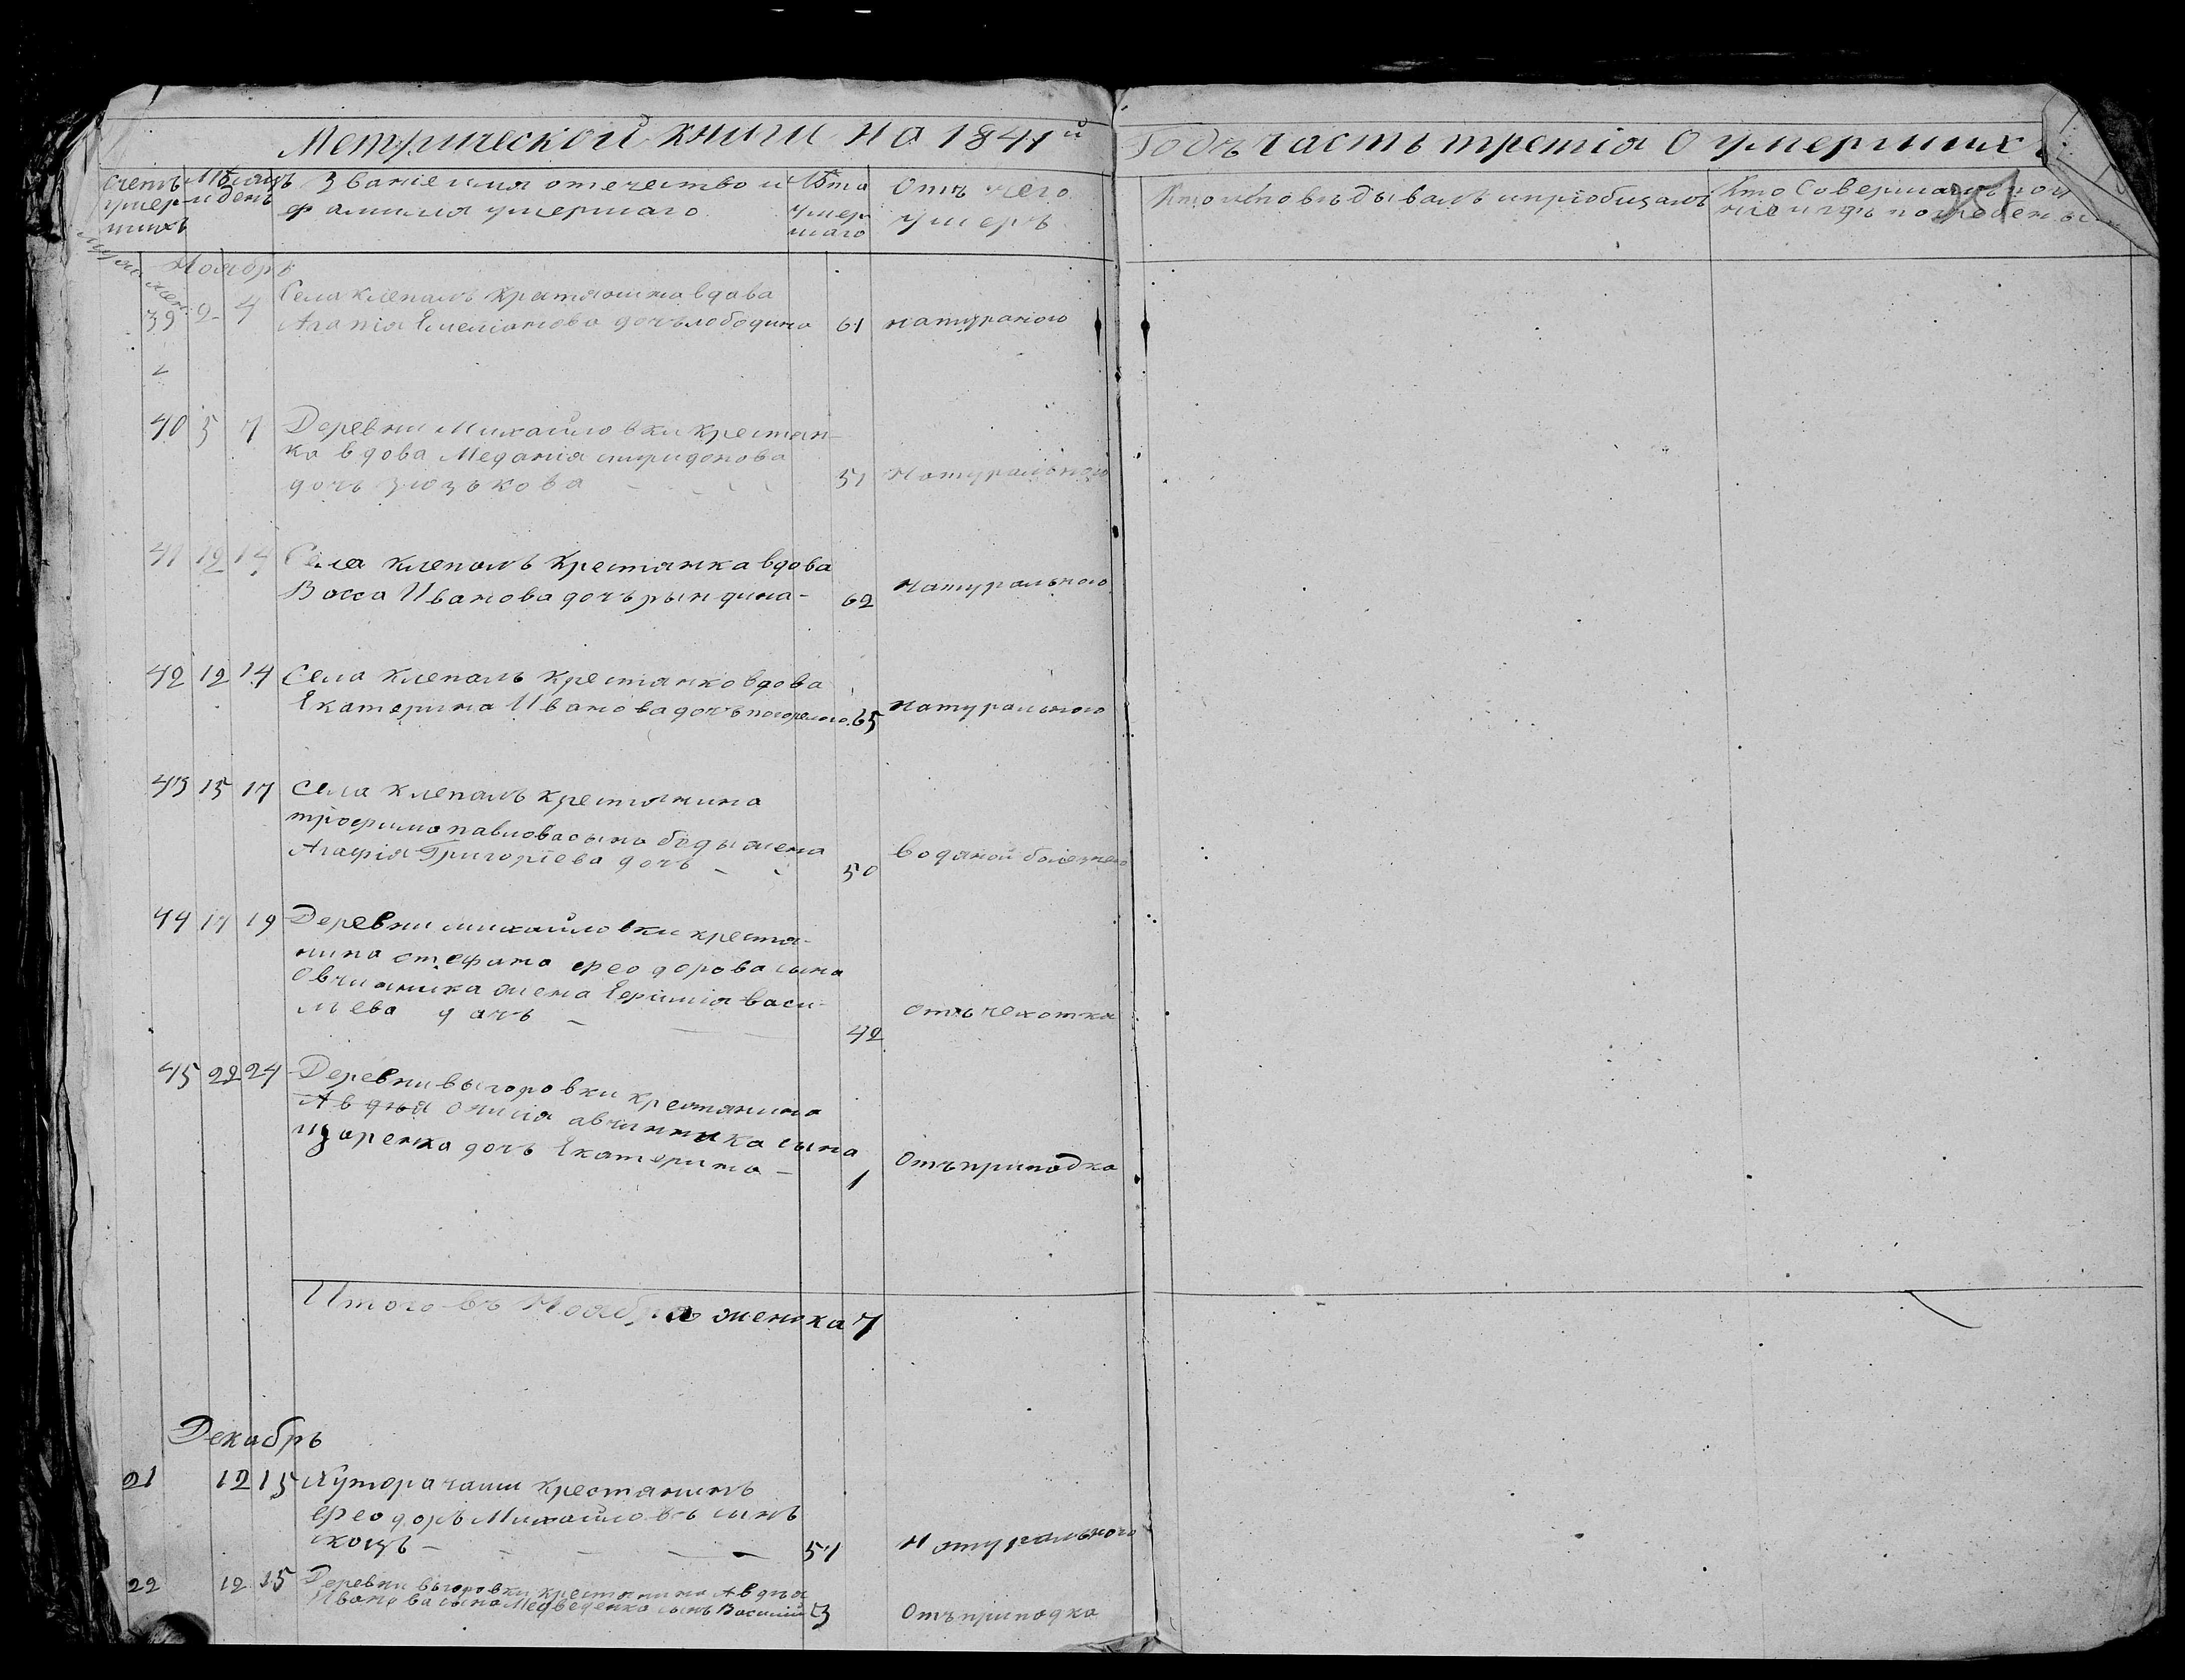 Метрической книги на 1841й Годъ часть третія О умершихъ
Счетъ умер-шихъ
Мѣсяцъ и День
Званіе имя отечество и фамилія умершаго
Лѣта умер-шаго
Отъ чего умеръ
Кто исповѣдывалъ и пріобщалъ
Кто Совершалъ и гдѣ погребены
Ноябрь
39 2 4 Села клепалъ крестянина вдова
Агапія Емеліанова дочь лободина 61 натураного
40 5 7 Деревни Михайловки крестян-
ка вдова Меланія спиридонова
дочь зюзькова 57 Натурального
41 12 14 Села клепалъ крестянка вдова
Васса Иванова дочь рындина- 62 натурального
42 12 14 Села клепалъ крестянка вдова
Екатерина Иванова дочь 65 натурального
43 15 17 Села клепалъ крестянина
трофима павлова сына беды жена
Агафія Григоріева дочь 50 водяной болезнею
44 17 19 Деревни михайловки крестя-
нина стефана феодорова сына
Овчиника жена Ефимія васи-
льева дочь 42 отъ чехотка
45 22 24 Деревни выгоровки крестянина
Авдѣя онисія авчинника сына
дочь Екатерина - 1 Отъ припадка
Итого въ Ноябрѣ женска 7
Декабрь
21 12 15 Хутора чаши крестянинъ
феодоръ Михайловъ сынъ
коцъ - 57 Натурального
22 12 15 Деревни выгоровки крестянина Авдѣя
Иванова сына Медведенка сынъ Василий 3 Отъ припадка